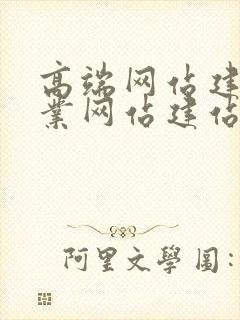 高端网佔建
業网佔建佔
阿里文學圖: